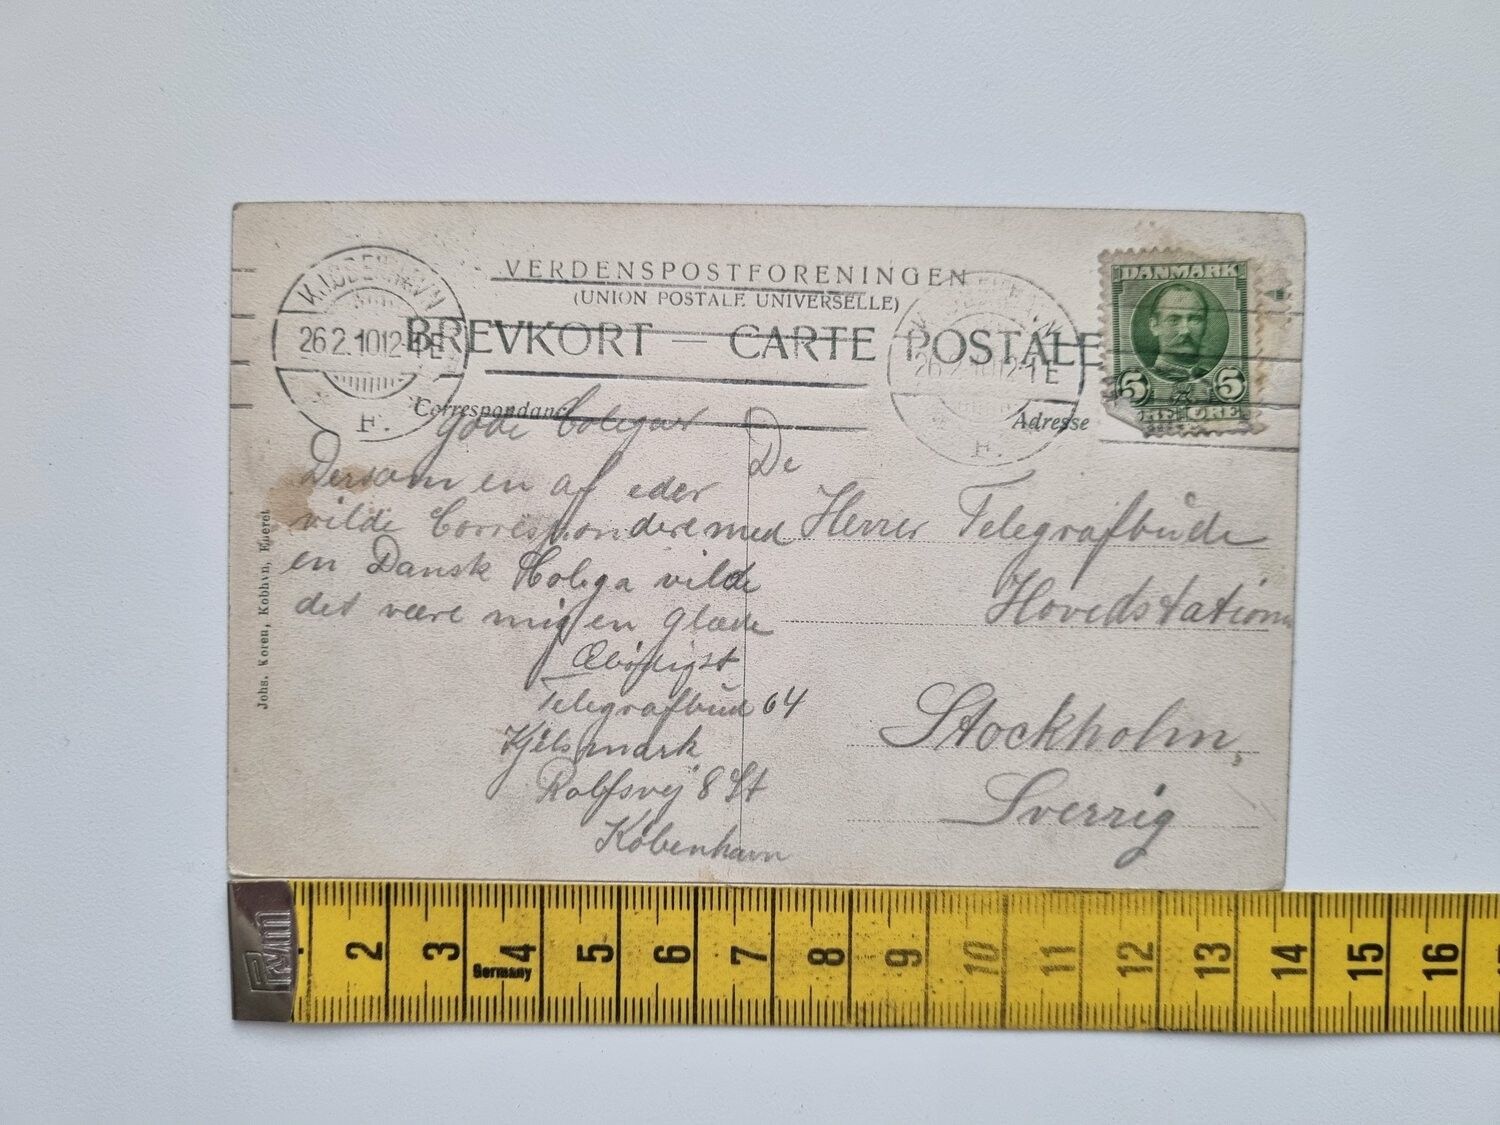 VERDENSPOSTFORENINGEN
(UNION POSTALE UNIVERSELLE)
BREVKORT — CARTE POSTALE
KJØBENHAVN
26.2.10 12-1 E
F.
KJØBENHAVN
26.2.10 12-1 E
F.
DANMARK
5 5
ØRE ØRE
Correspondance
Adresse
Gode Colegar
Dersom en af eder
vilde Correspondere med
en Dansk Colega vilde
det være mig en Glæde
Ærbødigst
Telegrafbud 64
Kjelsmark
Rolfsvej 8 St
København
De
Herrer Telegrafbude
Hovedstation
Stockholm,
Sverrig
Johs. Koren, Kobhvn, Eneret
PRYM
Germany
2 3 4 5 6 7 8 9 10 11 12 13 14 15 16